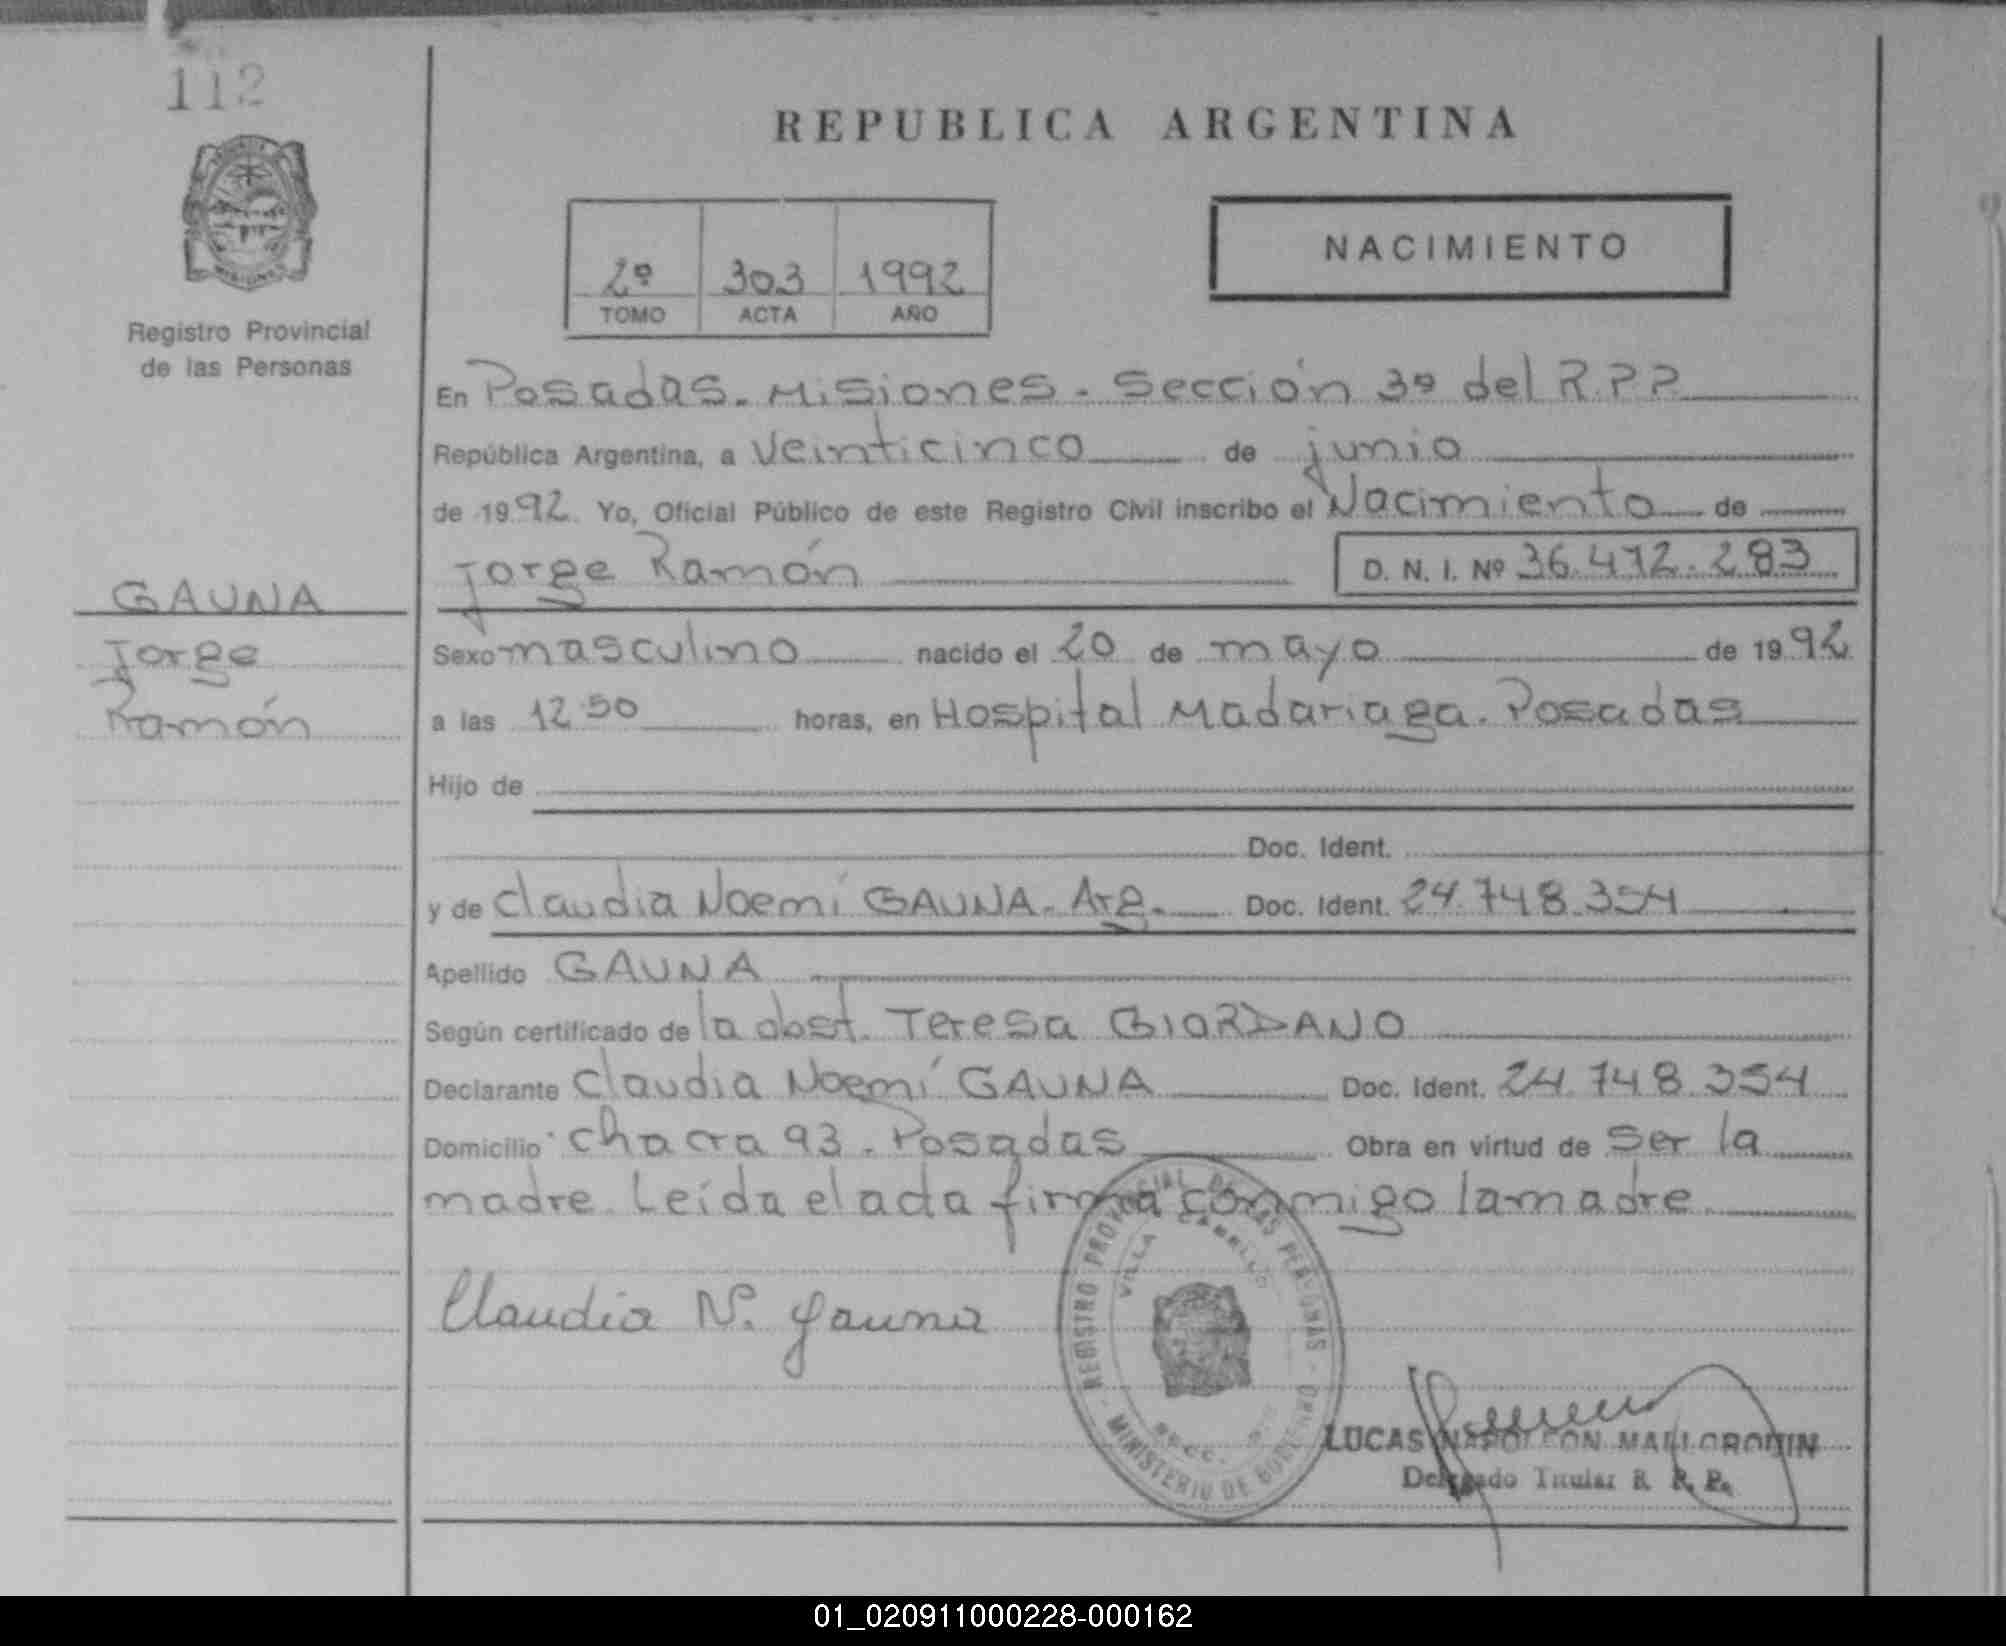 112
REPUBLICA ARGENTINA
NACIMIENTO
2º 303 1992
TOMO ACTA AÑO
Registro Provincial
de las Personas
En Posadas. Misiones. Sección 3ª del R.P.P.
República Argentina, a veinticinco de junio
de 1992. Yo, Oficial Público de este Registro Civil inscribo el Nacimiento de
Jorge Ramón D. N. I. Nº 36.472.283
GAUNA
Jorge
Ramón
Sexo masculino nacido el 20 de mayo de 1992
a las 12.50 horas, en Hospital Madariaga. Posadas
Hijo de
Doc. Ident.
y de Claudia Noemí GAUNA. Arg. Doc. Ident. 24.748.354
Apellido GAUNA
Según certificado de la obst. Teresa GIORDANO
Declarante Claudia Noemí GAUNA Doc. Ident. 24.748.354
Domicilio Chacra 93. Posadas Obra en virtud de ser la
madre. Leída el acta firma conmigo la madre
Claudia N. Gauna
REGISTRO PROVINCIAL DE LAS PERSONAS - MINISTERIO DE GOBIERNO -
VILLA CABELLO
SECC.
LUCAS NAPOLEON MALLORQUIN
Delegado Titular R. P. P.
01_020911000228-000162